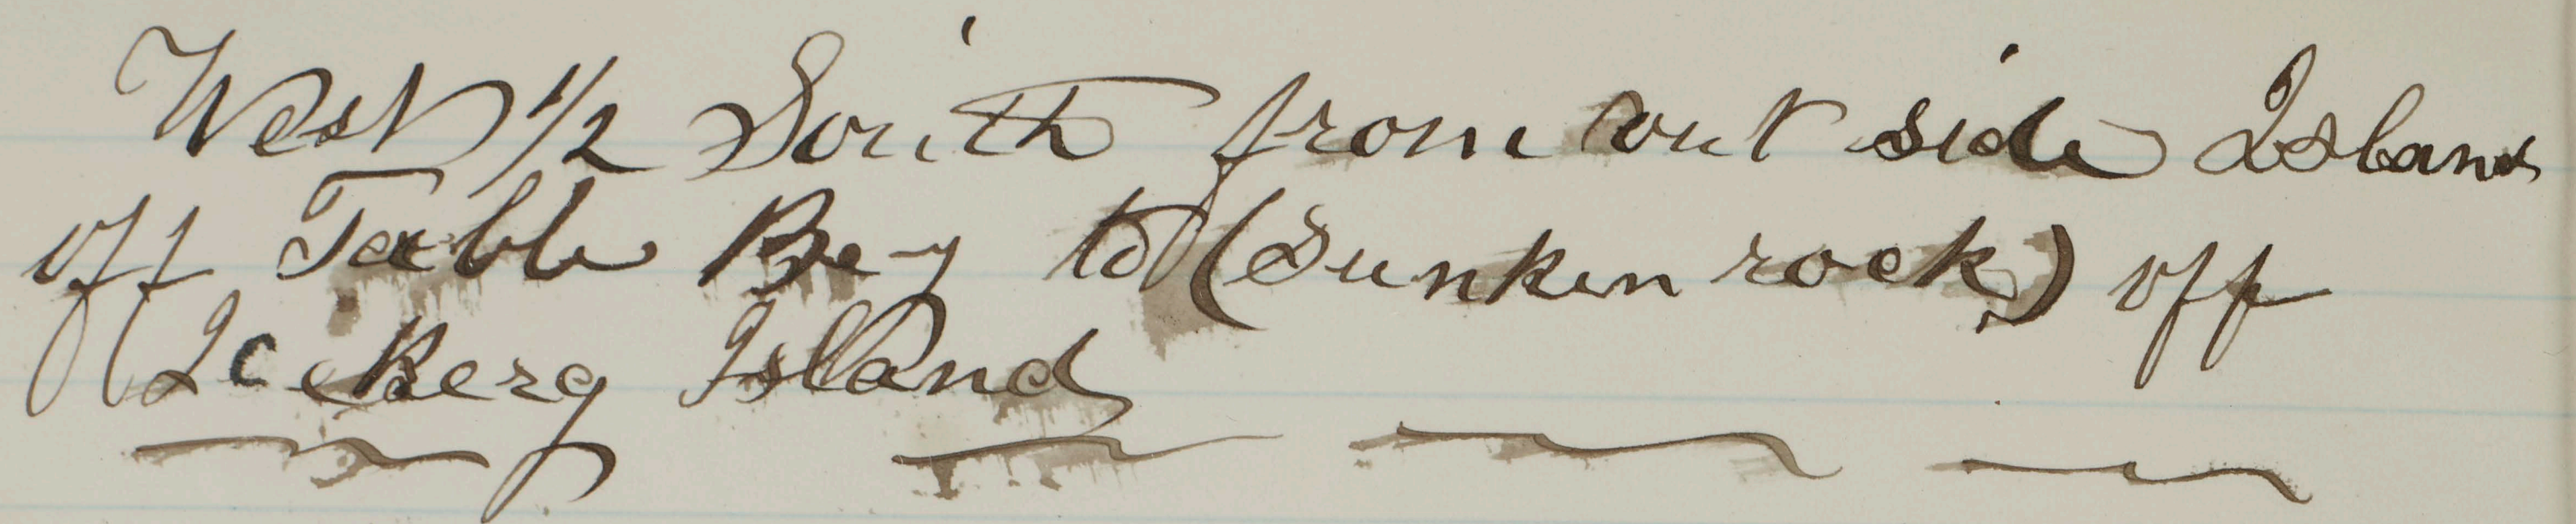 West 1/2 South from out side Island
off Table Bay to (Sunken rock) off
Ice Berg Island